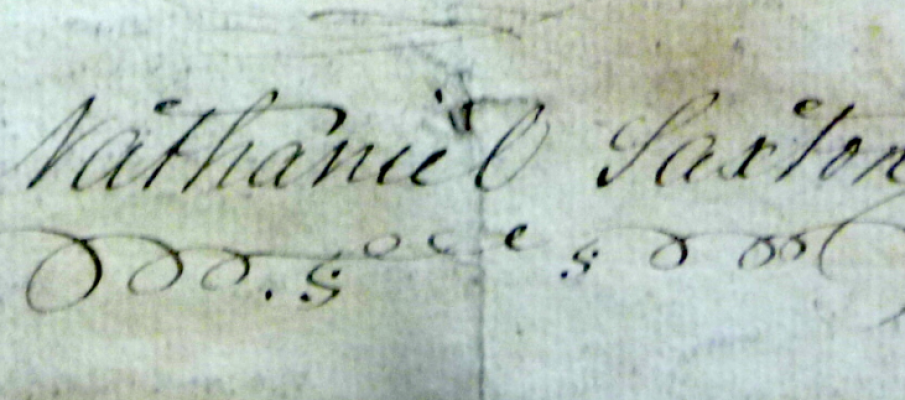 Nathaniel Saxton